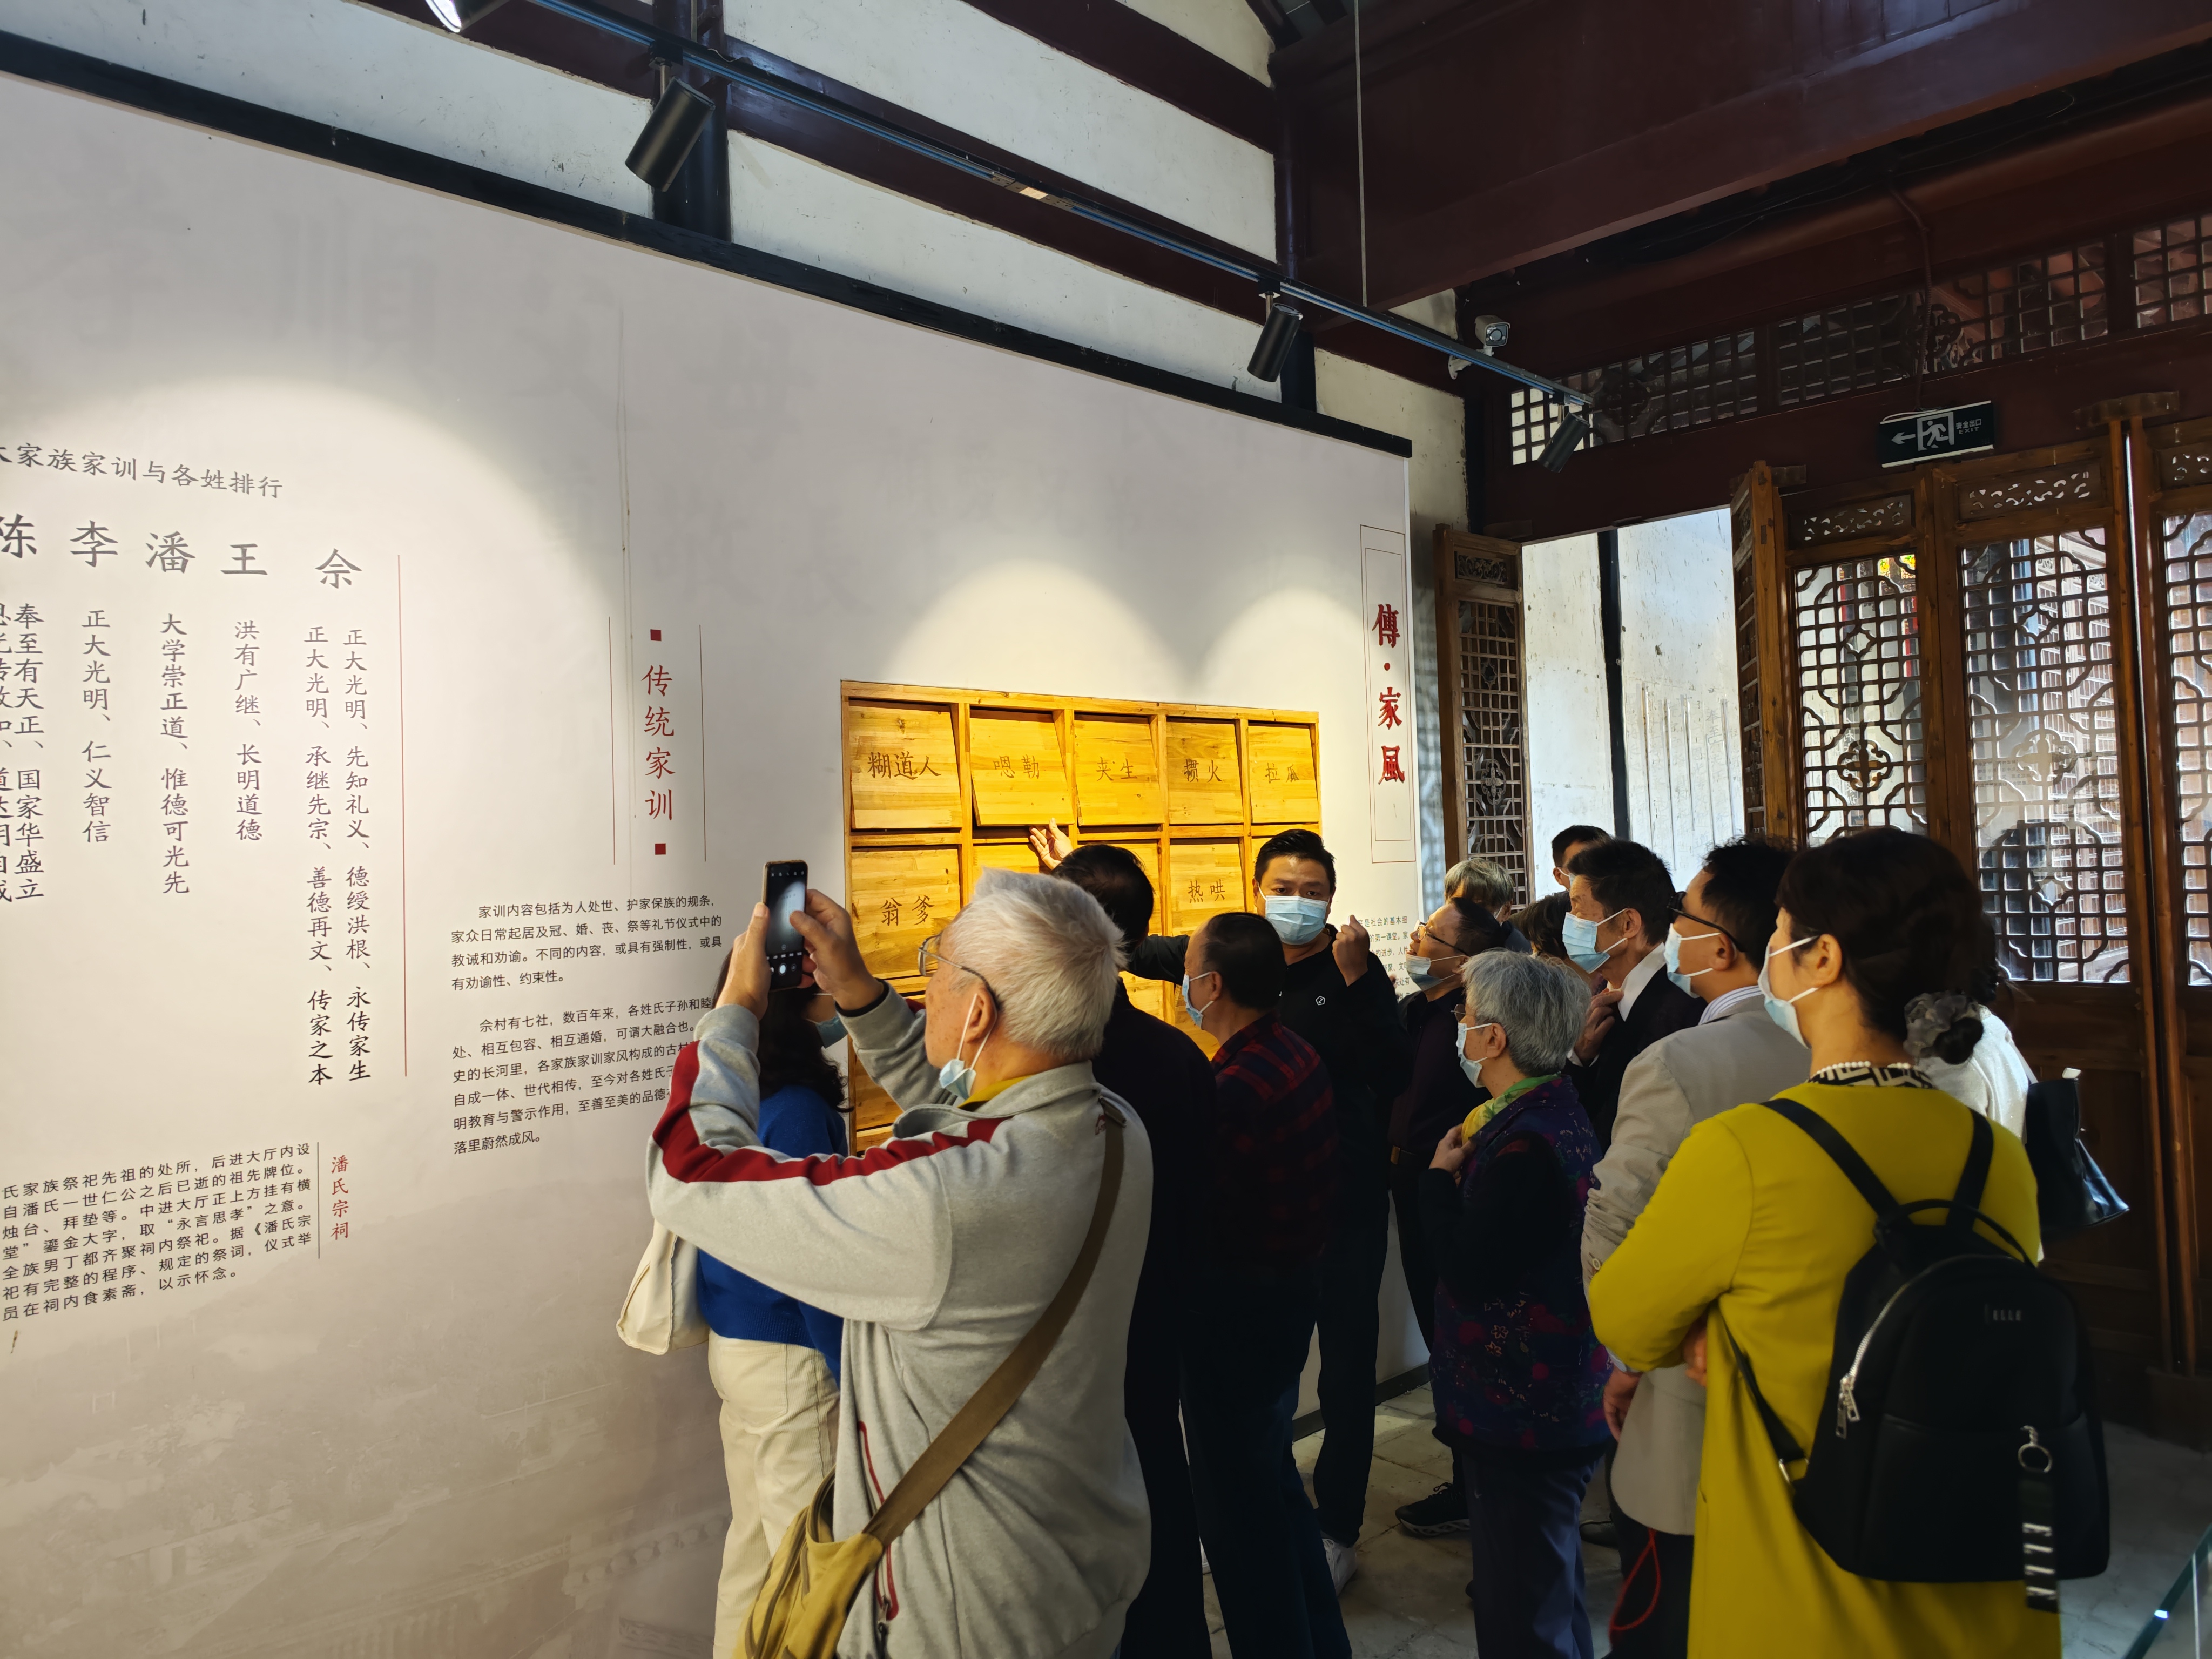 家族家训与各姓排行
陈
李
潘
王
佘
奉至有天正、国家华盛立
正大光明、仁义智信
大学崇正道、惟德可光先
洪有广继、长明道德
正大光明、承继先宗、善德再文、传家之本
正大光明、先知礼义、德绶洪根、永传家生
传统家训
家训内容包括为人处世、护家保族的规条，
家众日常起居及冠、婚、丧、祭等礼节仪式中的
教诫和劝谕。不同的内容，或具有强制性，或具
有劝谕性、约束性。
佘村有七社，数百年来，各姓氏子孙和睦
处、相互包容、相互通婚，可谓大融合也。
史的长河里，各家族家训家风构成的古村
自成一体、世代相传，至今对各姓氏子
明教育与警示作用，至善至美的品德
落里蔚然成风。
潘氏宗祠
氏家族祭祀先祖的处所，后进大厅内设
自潘氏一世仁公之后已逝的祖先牌位。
烛台、拜垫等。中进大厅正上方挂有横
堂”鎏金大字，取“永言思孝”之意。
全族男丁都齐聚祠内祭祀。据《潘氏宗
祀有完整的程序、规定的祭词，仪式举
员在祠内食素斋，以示怀念。
糊道人
嗯勒
夹生
掼火
拉瓜
翁爹
热哄
傳·家風
是社会的基本组
的第一课堂。家
安全出口
EXIT
ELLE
ELLE